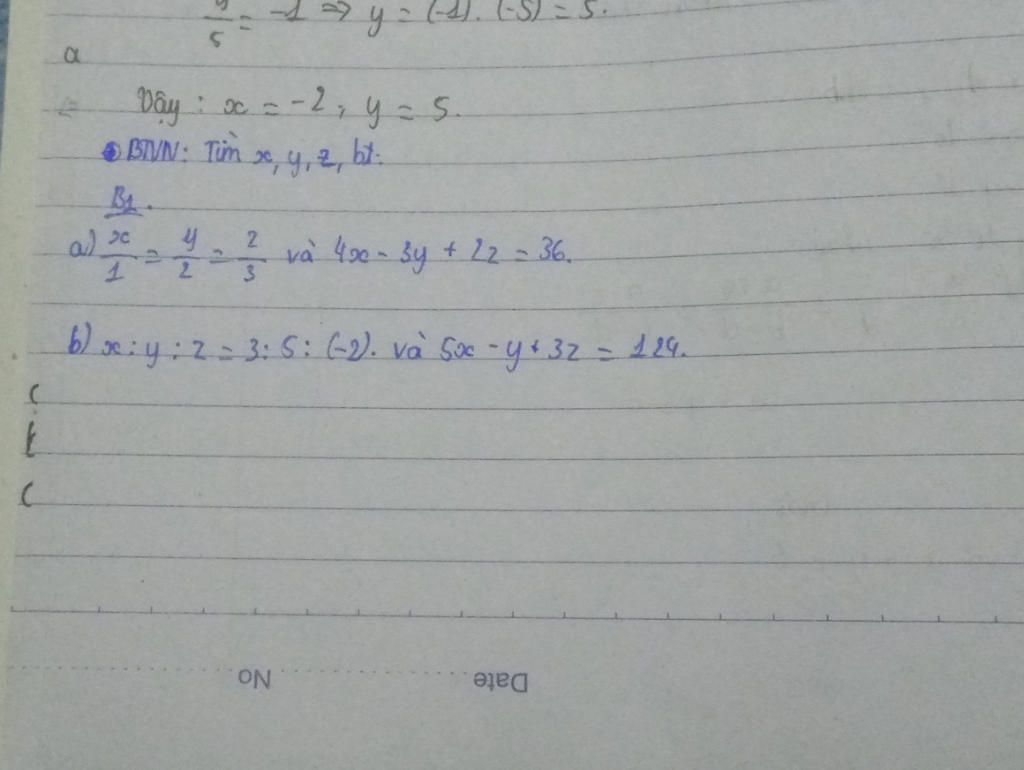 y/5 = -1 => y = (-1). (-5) = 5.
a
Vậy : x = -2 ; y = 5.
BTVN: Tìm x, y, z, bt:
B1.
a) x/1 = y/2 = z/3 và 4x - 3y + 2z = 36.
b) x : y : z = 3 : 5 : (-2). và 5x - y + 3z = 124.
(
(
No Date